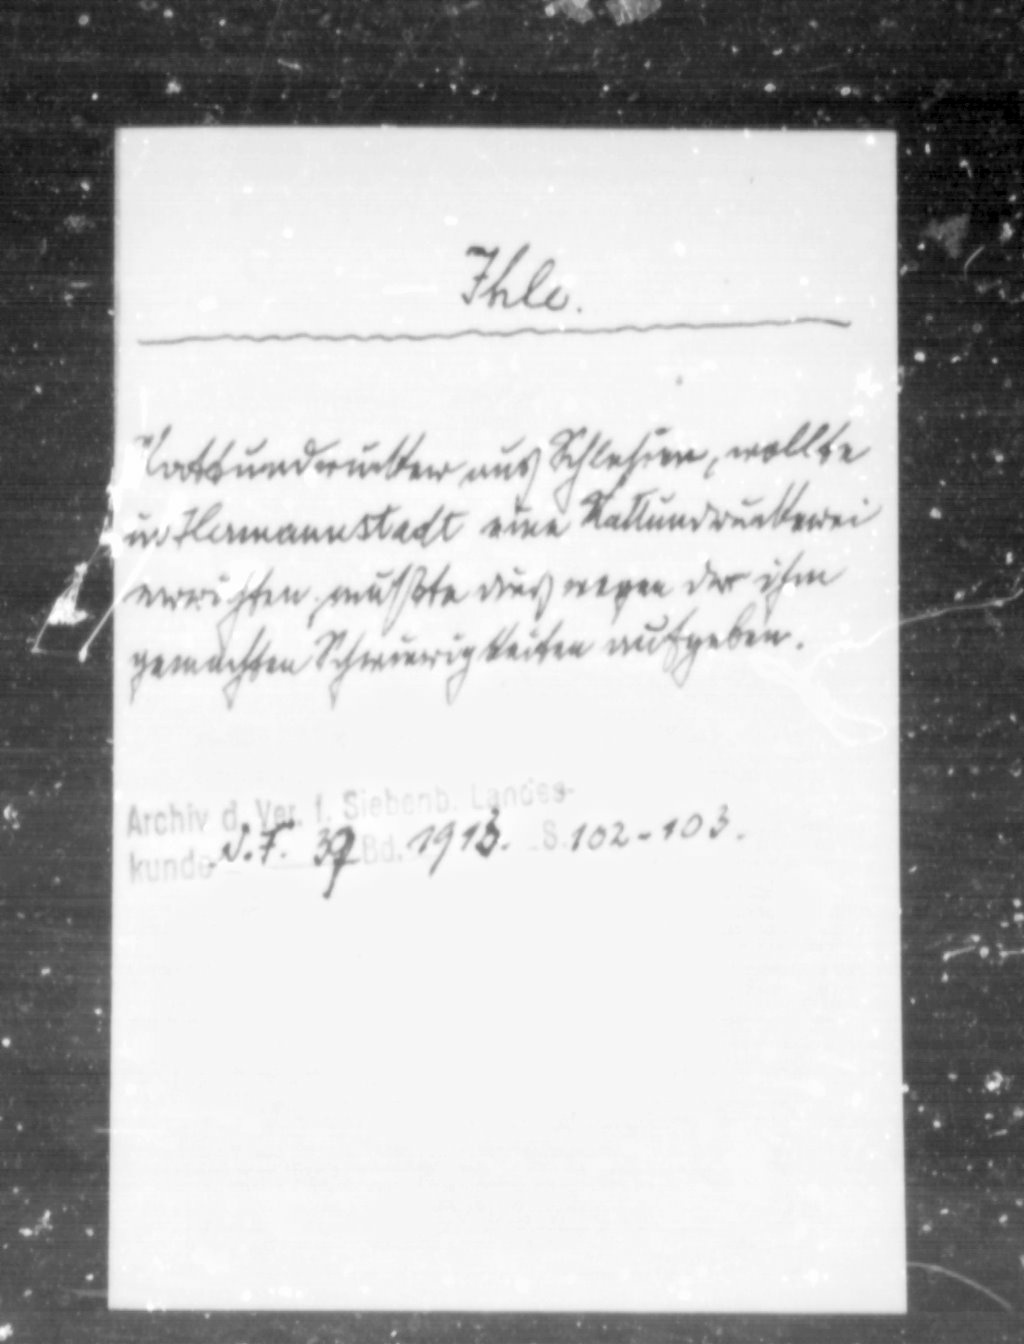 Ihle.
Kattundrucker aus Schlesien, wollte
in Hermannstadt eine Kattundruckerei
errichten, mußte dies wegen der ihm
gemachten Schwierigkeiten aufgeben.
Archiv d. Ver. f. Siebenb. Landes-
kunde N.F. 39 Bd. 1913. S. 102-103.